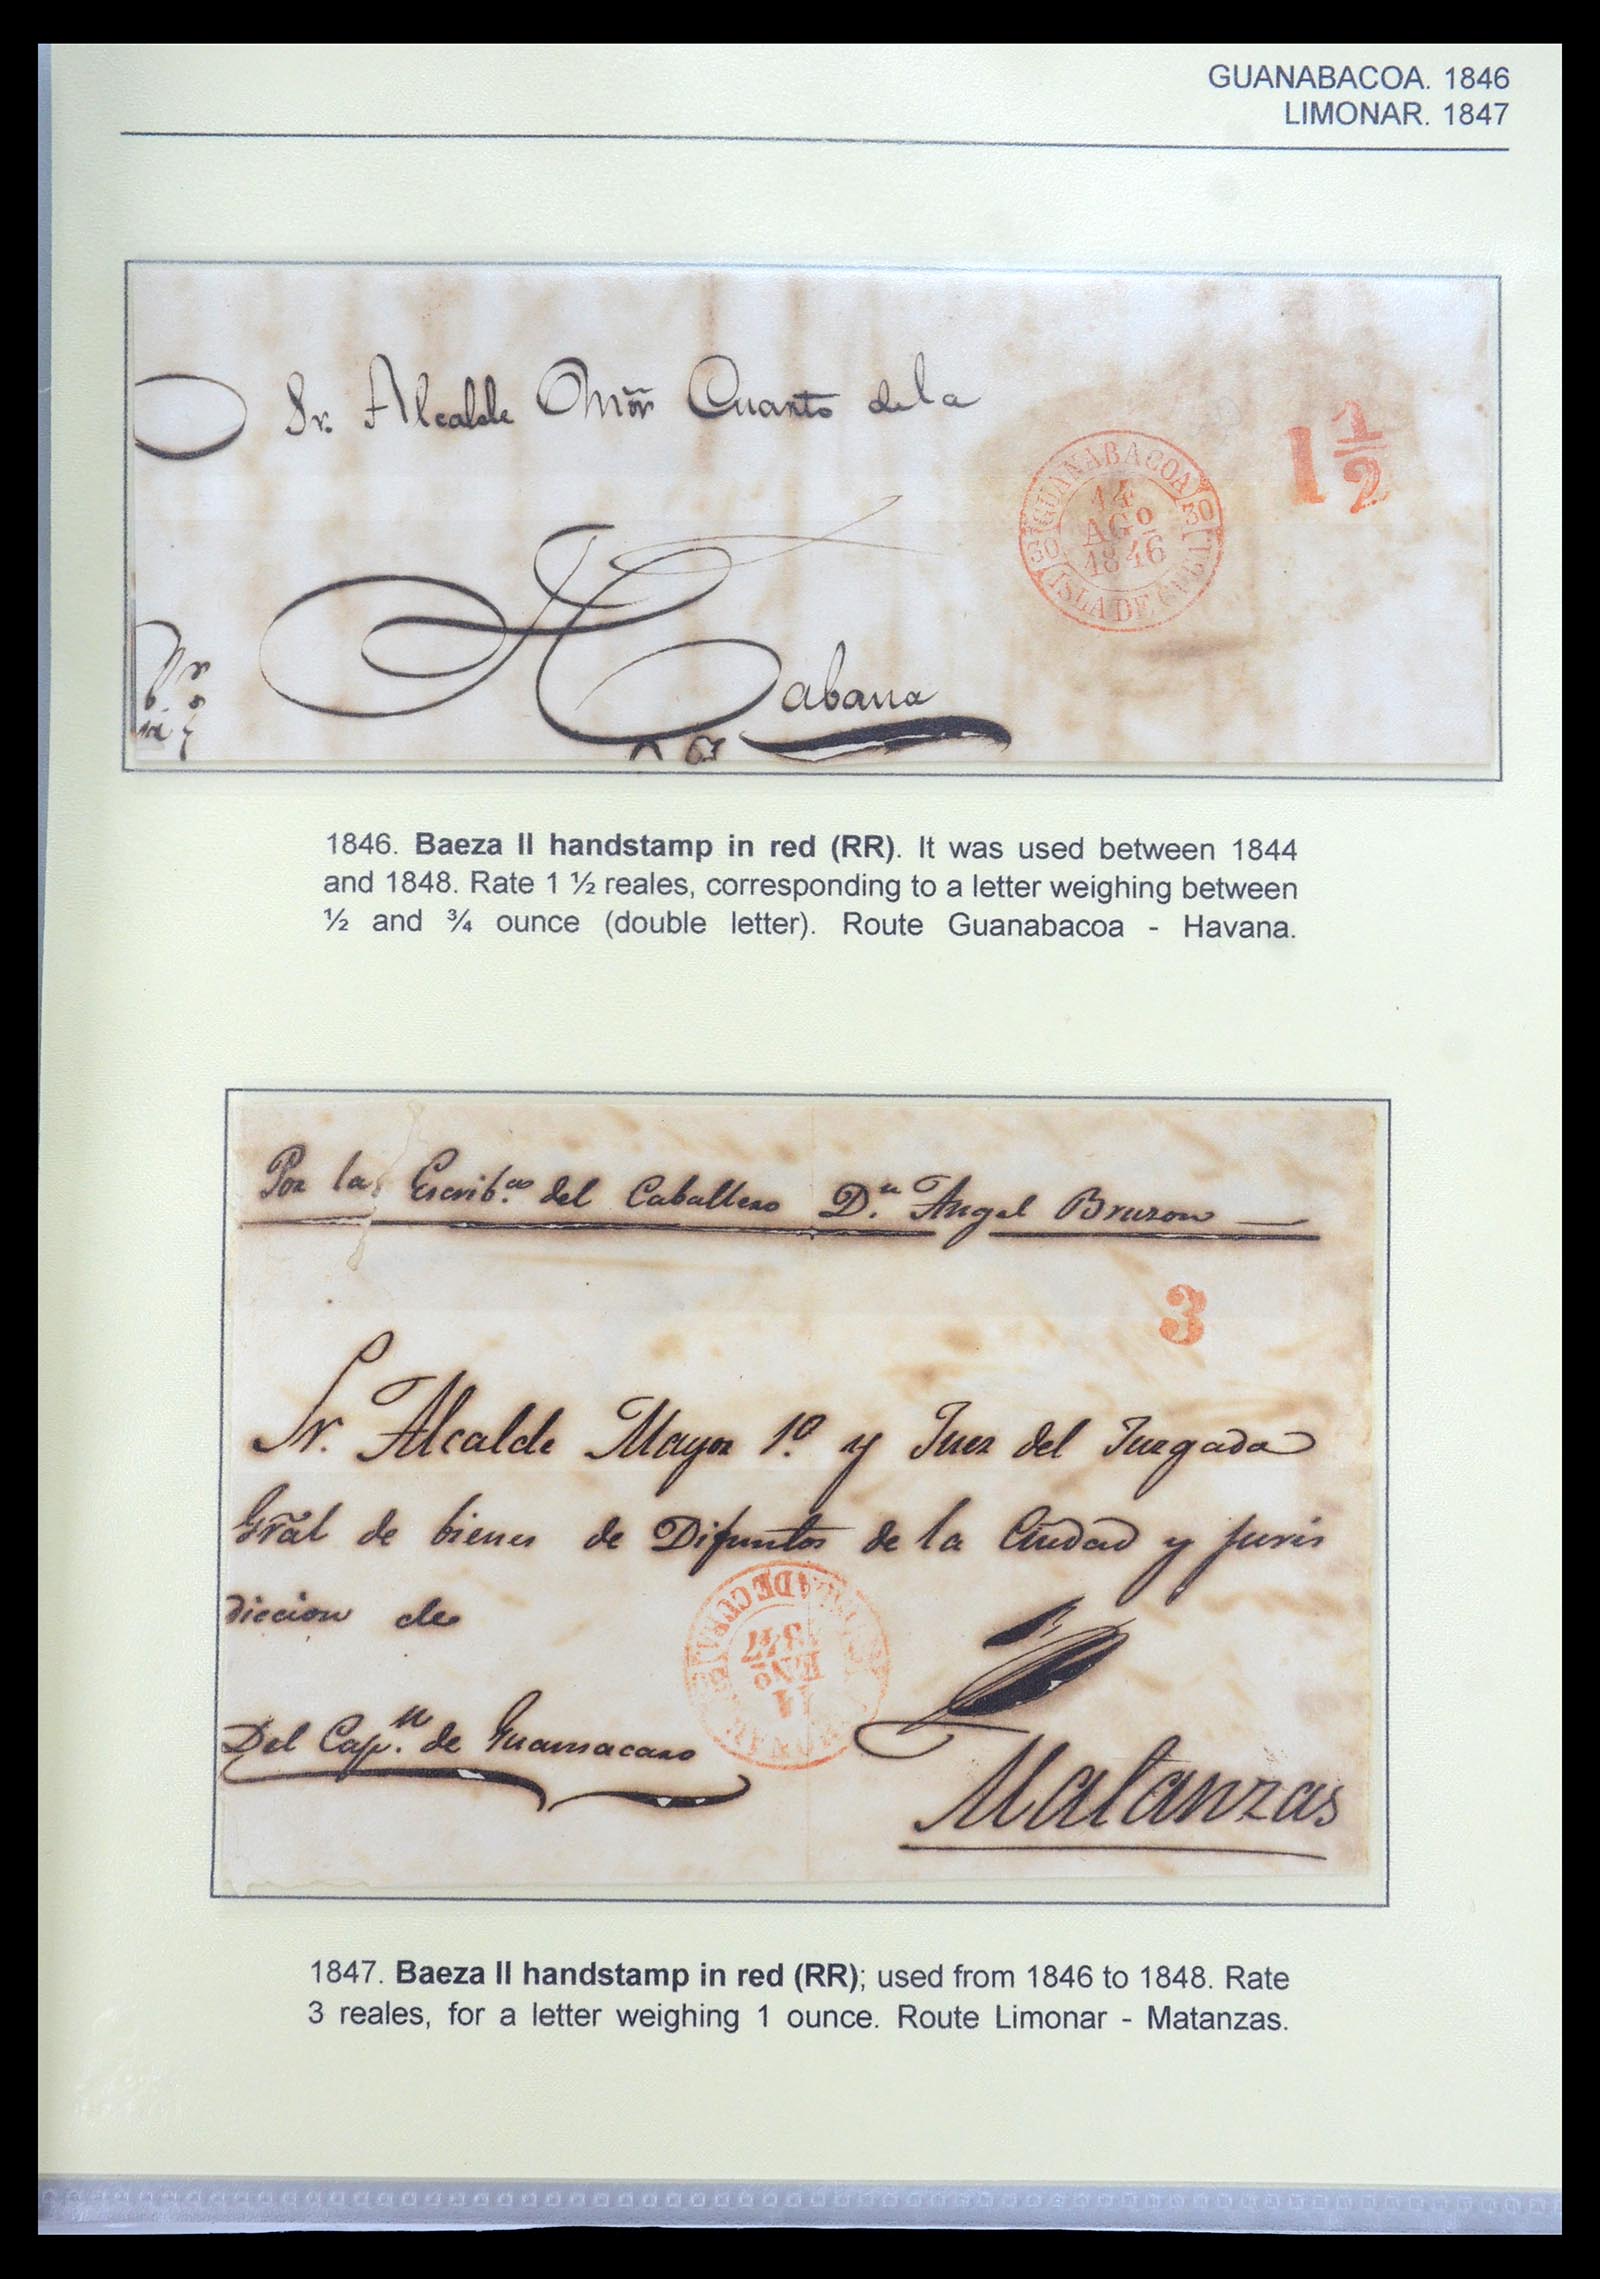 GUANABACOA. 1846
LIMONAR. 1847
Sr. Alcalde Mõr Cuarto de la
Habana
GUANABACOA
14
AGº
1846
30 30
ISLA DE CUBA
1 1/2
1846. Baeza II handstamp in red (RR). It was used between 1844
and 1848. Rate 1 ½ reales, corresponding to a letter weighing between
½ and ¾ ounce (double letter). Route Guanabacoa - Havana.
Por la Escrib.as del Caballero D.n Angel Bruzon
3
Sr. Alcalde Mayor 1º. y Juez del Juzgado
Grãl de bienes de Difuntos de la Ciudad y juris
diccion de
11
ENº
1847
Del Cap.n de Guamacaro
Matanzas
1847. Baeza II handstamp in red (RR); used from 1846 to 1848. Rate
3 reales, for a letter weighing 1 ounce. Route Limonar - Matanzas.